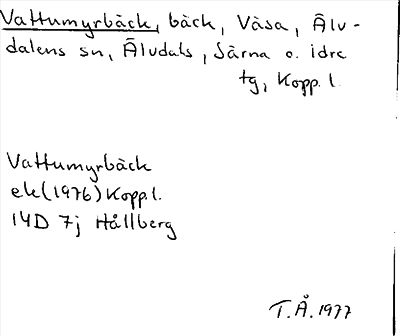 Vattumyrbäck, bäck, Våsa, Älv-
dalens sn, Älvdals, Särna o. Idre
tg, Kopp. l.
Vattumyrbäck
ek (1976) Kopp. l.
14D 7j Hållberg
T.Å. 1977